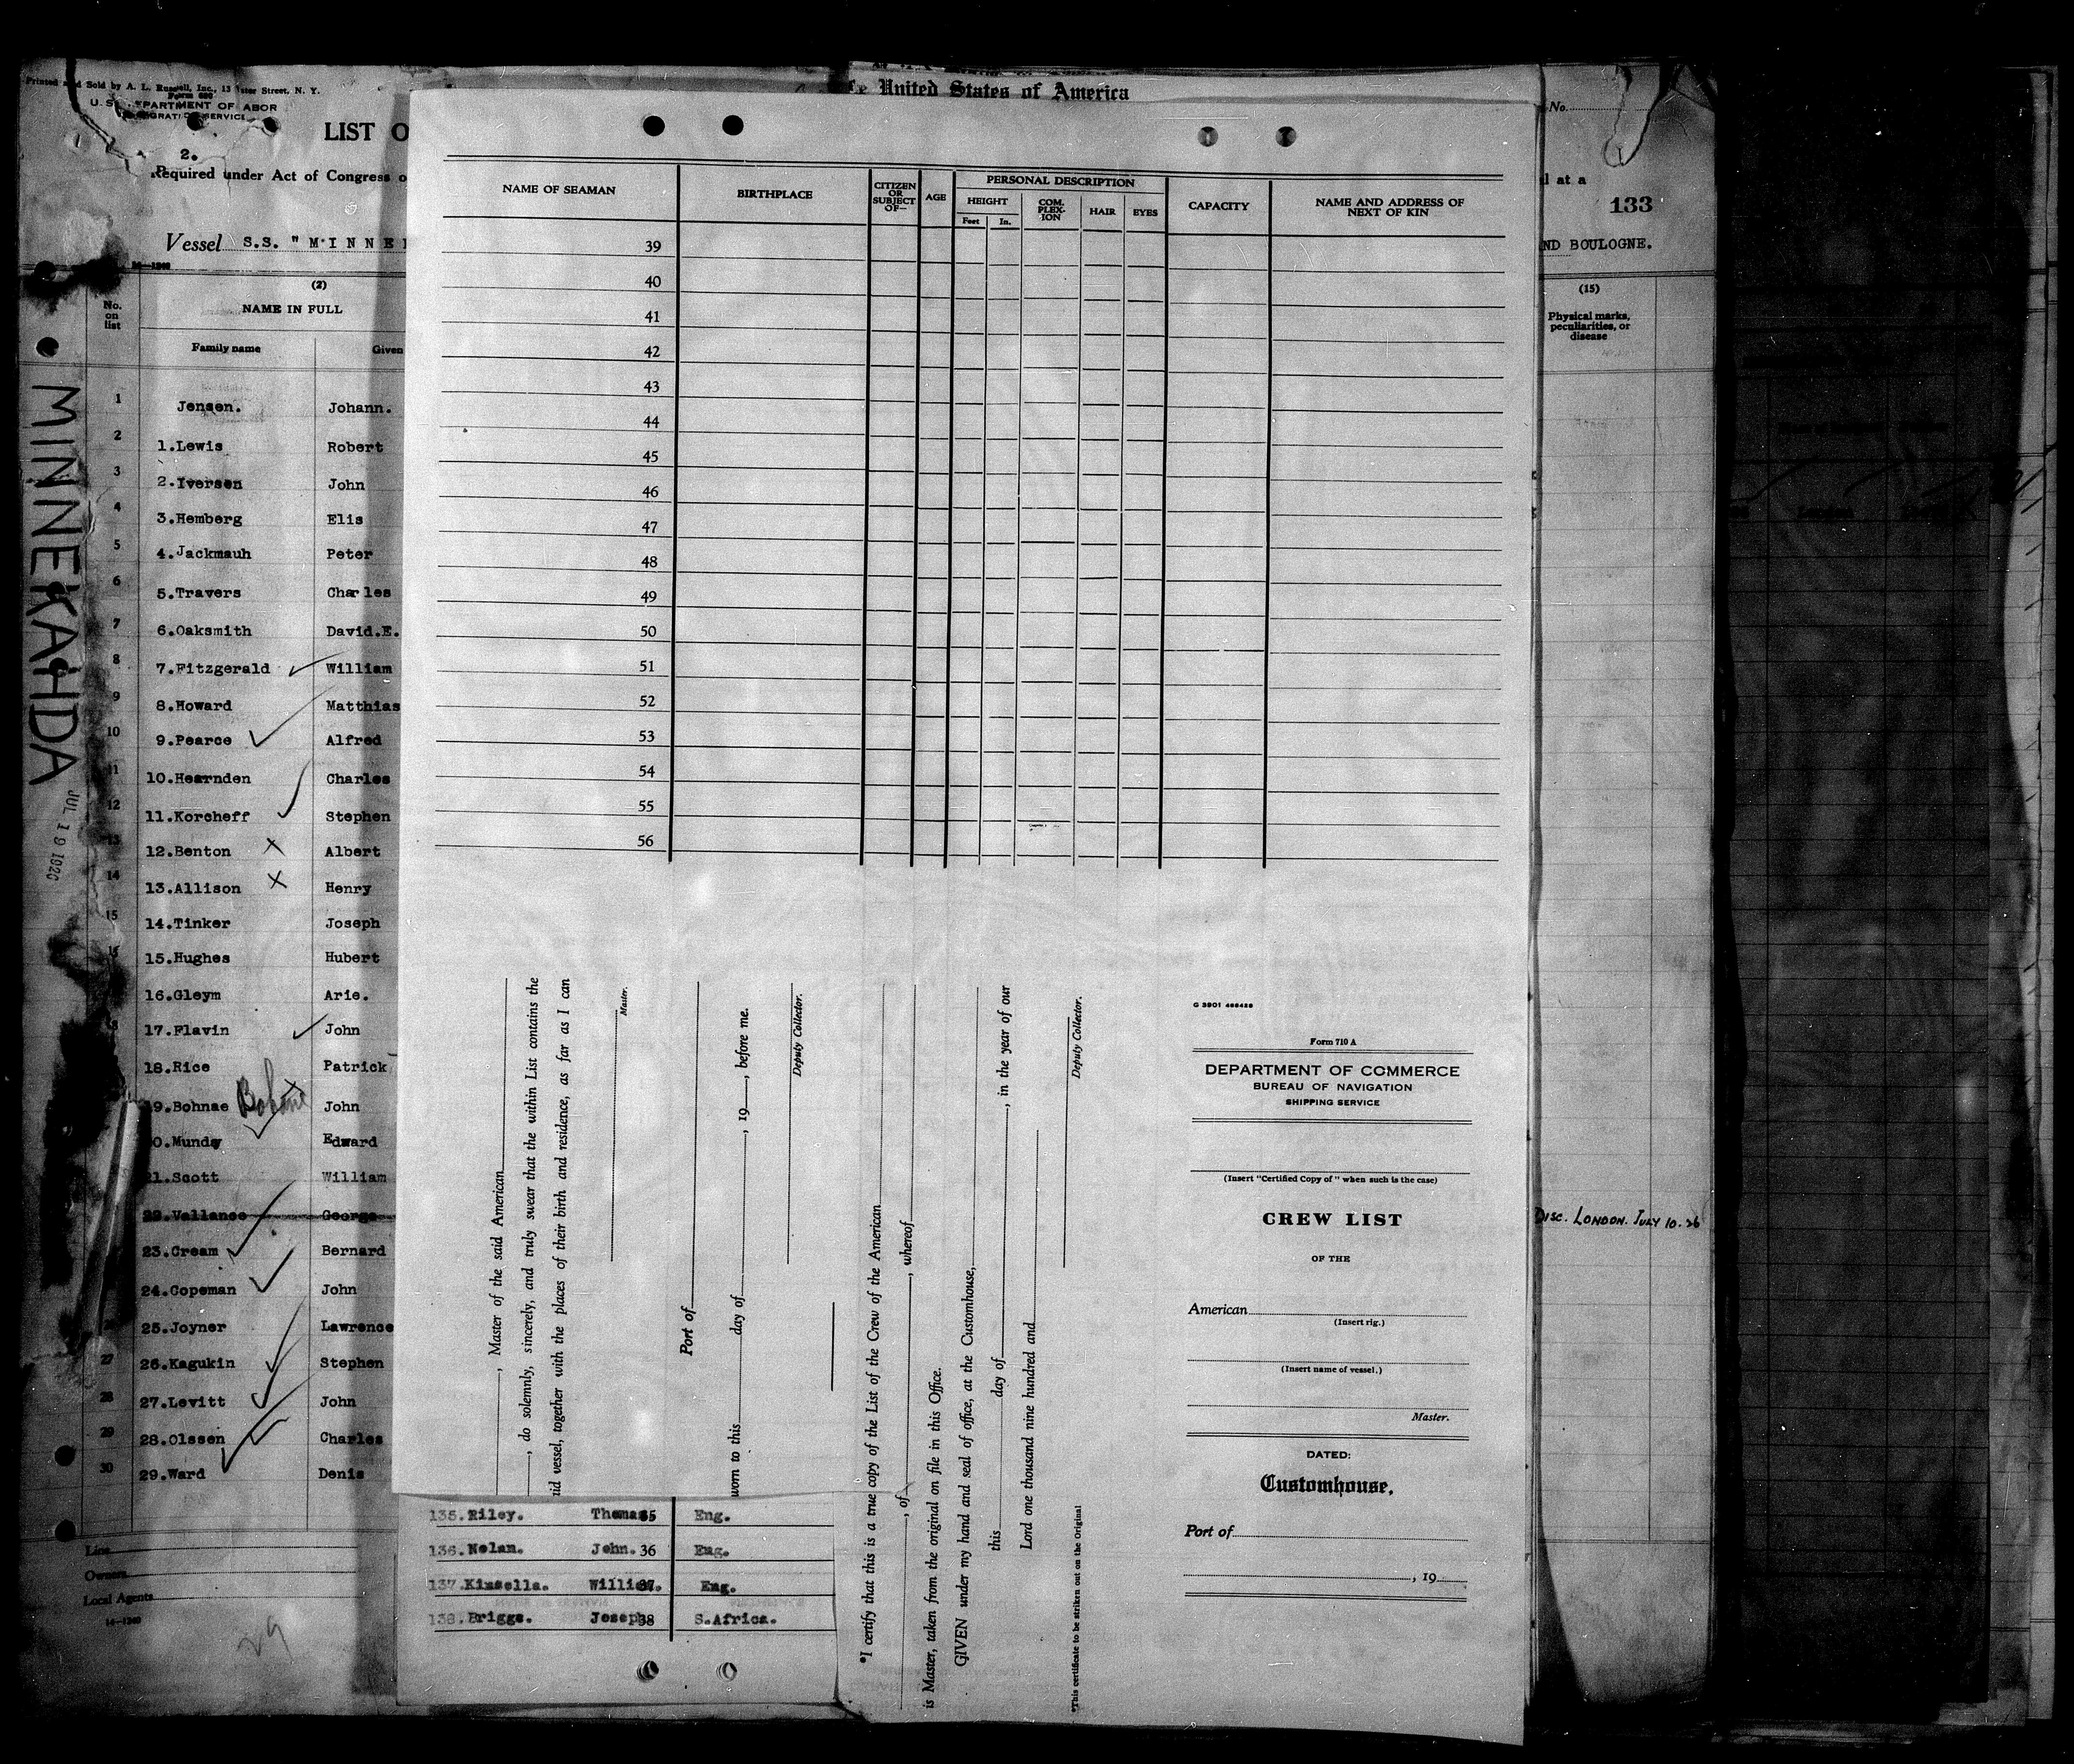 Printed and Sold by A. L. Russell, Inc., 13 Water Street, N. Y.
Form 680
U.S. DEPARTMENT OF LABOR
IMMIGRATION SERVICE
LIST O
2.
Required under Act of Congress o
Vessel S.S. "MINNE
14—1240
No. on list
(2)
NAME IN FULL
Family name Given
1 Jensen. Johann.
2 1.Lewis Robert
3 2.Iversen John
4 3.Hemberg Elis
5 4.Jackmauh Peter
6 5.Travers Charles
7 6.Oaksmith David.E.
8 7.Fitzgerald William
9 8.Howard Matthias
10 9.Pearce Alfred
11 10.Hearnden Charles
12 11.Korcheff Stephen
13 12.Benton Albert
14 13.Allison Henry
15 14.Tinker Joseph
15.Hughes Hubert
16.Gleym Arie.
17.Flavin John
18.Rice Patrick
19.Bohnae John
0.Munday Edward
21.Scott William
22.Vallance George
23.Cream Bernard
24.Copeman John
25.Joyner Lawrence
27 26.Kagukin Stephen
28 27.Levitt John
29 28.Olssen Charles
30 29.Ward Denis
Line
Owners
Local Agents
14—1240
29
MINNEKAHDA
JUL 19 1926
United States of America
NAME OF SEAMAN
BIRTHPLACE
CITIZEN OR SUBJECT OF—
AGE
PERSONAL DESCRIPTION
HEIGHT
Feet In.
COM. PLEX- ION
HAIR
EYES
CAPACITY
NAME AND ADDRESS OF NEXT OF KIN
39
40
41
42
43
44
45
46
47
48
49
50
51
52
53
54
55
56
, Master of the said American
, do solemnly, sincerely, and truly swear that the within List contains the
id vessel, together with the places of their birth and residence, as far as I can
Master.
Port of
worn to this day of , 19 , before me.
Deputy Collector.
*I certify that this is a true copy of the List of the Crew of the American
, of , whereof
is Master, taken from the original on file in this Office.
GIVEN under my hand and seal of office, at the Customhouse,
this day of , in the year of our
Lord one thousand nine hundred and
Deputy Collector.
*This certificate to be striken out on the Original
G 3901 468428
Form 710 A
DEPARTMENT OF COMMERCE
BUREAU OF NAVIGATION
SHIPPING SERVICE
(Insert "Certified Copy of" when such is the case)
CREW LIST
OF THE
American
(Insert rig.)
(Insert name of vessel.)
Master.
DATED:
Customhouse.
Port of
, 19
135.Riley. Thomas 35 Eng.
136.Nolan. John. 36 Eng.
137.Kinsella. Willi 37. Eng.
138.Briggs. Joseph 38 S.Africa.
No.
l at a
133
ND BOULOGNE.
(15)
Physical marks, peculiarities, or disease
DISC. LONDON. JULY 10.26